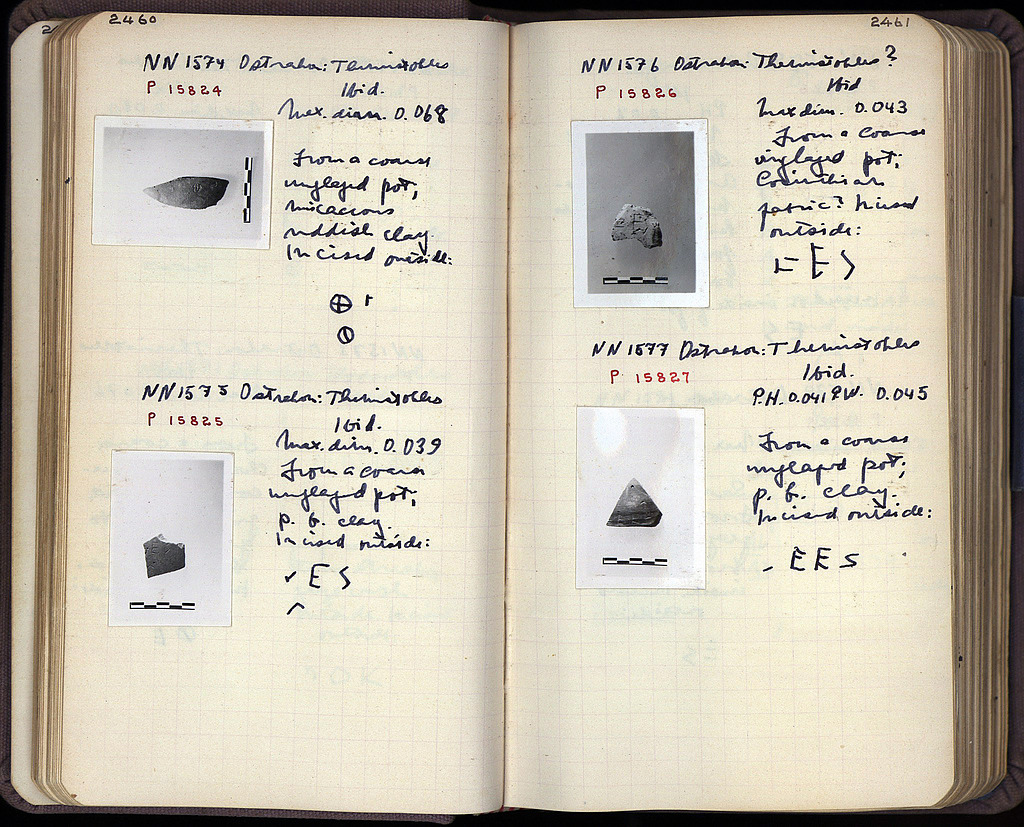 2460
NN 1574 Ostrakon: Themistokles
P 15824
Ibid.
Max. diam. 0.068
From a coarse
unglazed pot;
micaceous
reddish clay.
Incised outside:
NN 1575 Ostrakon: Themistokles
P 15825
Ibid.
Max. dim. 0.039
From a coarse
unglazed pot;
p. b. clay.
Incised outside:
E S
2461
NN 1576 Ostrakon: Themistokles?
P 15826
Ibid
Max dim. 0.043
From a coarse
unglazed pot;
Corinthian
fabric? Incised
outside:
E S
NN 1577 Ostrakon: Themistokles
P 15827
Ibid.
P.H. 0.041 P.W. 0.045
From a coarse
unglazed pot;
p. b. clay.
Incised outside:
E E S